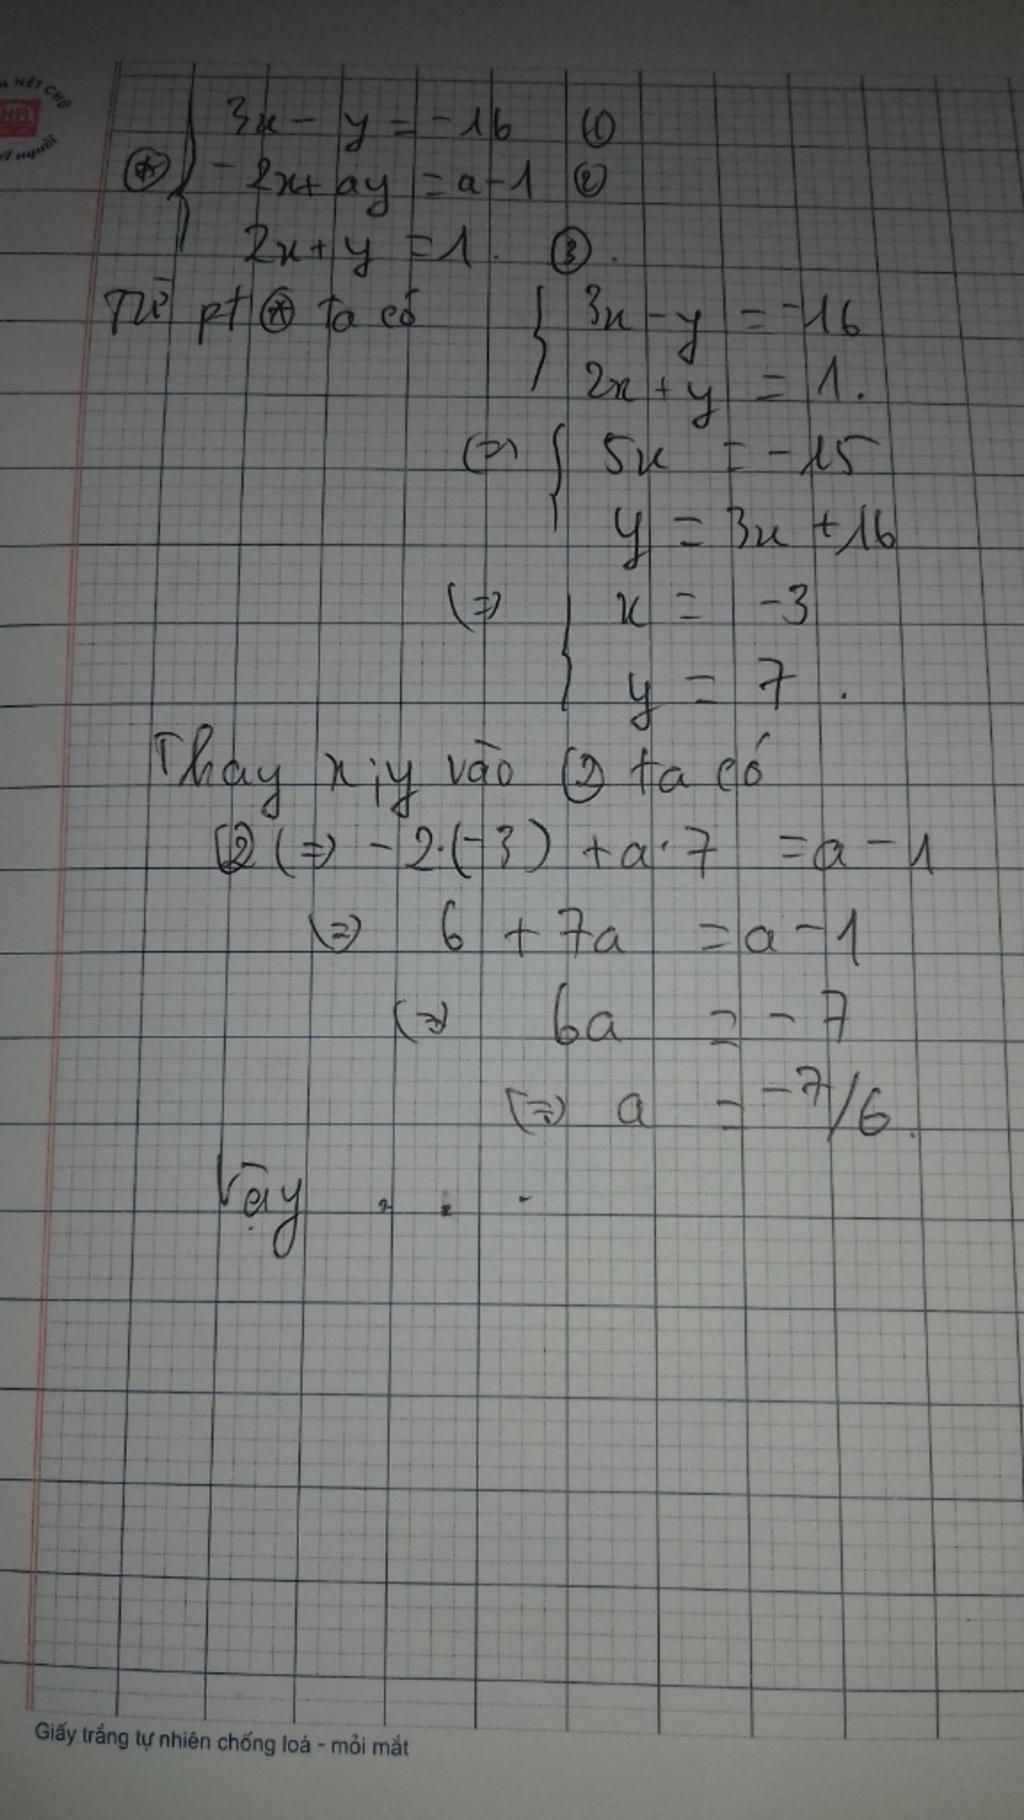 N NÉT CHỮ
HA
ết người
3x - y = -16 (1)
(*) -2x + ay = a - 1 (2)
2x + y = 1. (3).
Từ pt (*) ta có { 3x - y = -16
2x + y = 1.
(=) { 5x = -15
y = 3x + 16
(=) { x = -3
y = 7.
Thay x;y vào (2) ta có
(2) (=) -2.(-3) + a.7 = a - 1
(=) 6 + 7a = a - 1
(=) 6a = -7
(=) a = -7/6.
Vậy . . .
Giấy trắng tự nhiên chống loá - mỏi mắt